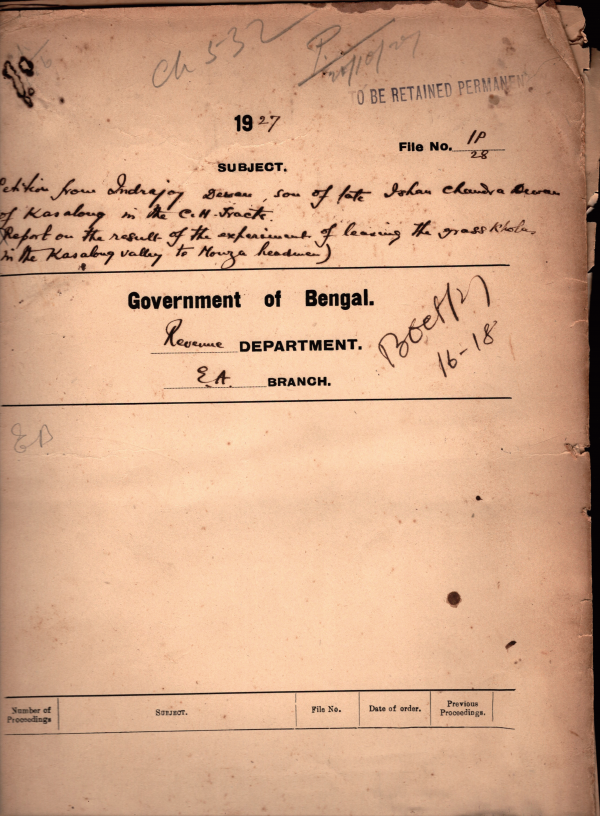 Ch 532
TO BE RETAINED PERMANEN
1927
File No. 1P/28
SUBJECT.
Petition from Indrajoy Dewan, son of late Ishan Chandra Dewan
of Kasalong in the C.H. Tracts.
(Report on the result of the experiment of leasing the grass Kholas
in the Kasalong valley to Mouza headmen)
Government of Bengal.
Revenue DEPARTMENT.
E.A. BRANCH.
B Oct/27
16-18
EB
Number of Proceedings
SUBJECT.
File No.
Date of order.
Previous Proceedings.